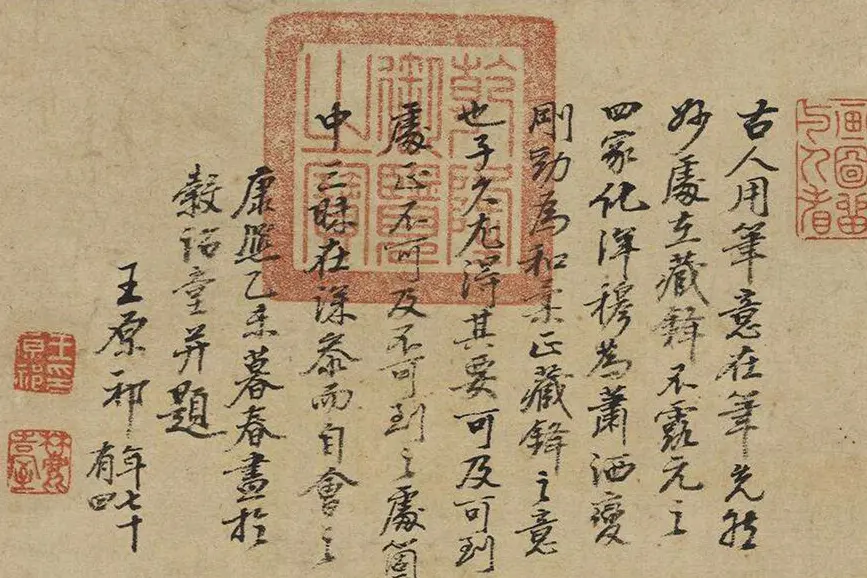 画圖留与人看
古人用筆意在筆先然
妙處在藏鋒不露元之
四家化渾穆為蕭洒變
剛勁為和柔正藏鋒之意
也子久尤得其要可及可到
處正不可及不可到之處箇
中三昧在深參而自會之
康熙乙未暮春畫於
穀詒堂并題
王原祁年七十
有四
乾隆御覽之寶